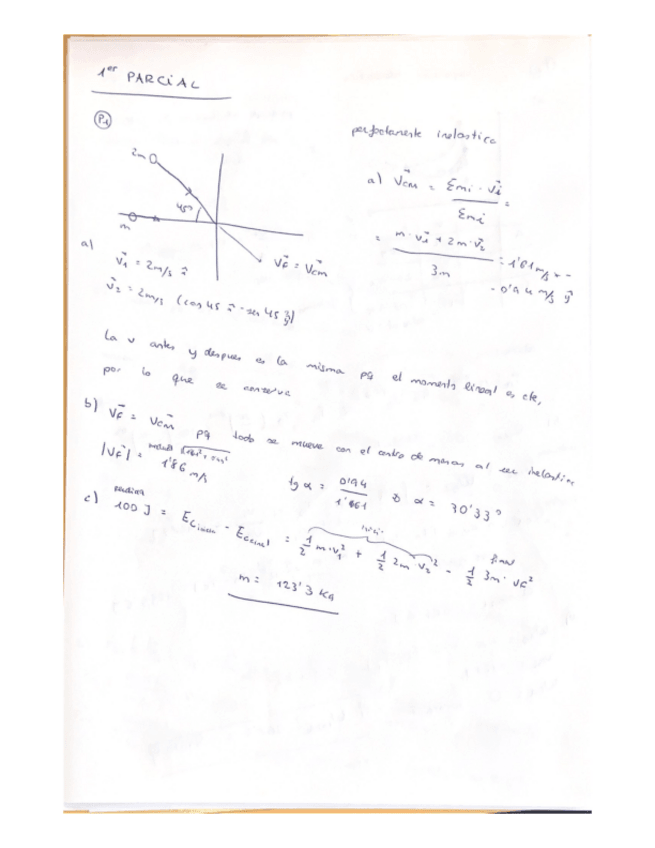 1er PARCIAL
P1
perfectamente inelastica
2m
45º
m
VF = VCM
a) VCM = Σmi · Vi / Σmi =
= m · v1 + 2m · v2 / 3m = 1'61 m/s x - 
- 0'94 m/s ŷ
a) V1 = 2m/s î
V2 = 2m/s (cos 45 î - sen 45 ĵ)
La v antes y despues es la misma pq el momento lineal es cte,
por lo que se conserva
b) VF = VCM pq todo se mueve con el centro de masas al ser inelastica
|VF| = 1'86 m/s
tg α = 0'94 / 1'61 α = 30'33º
c) 100 J = Ec - Ec = 1/2 m · v1² + 1/2 2m · v2² - 1/2 3m · vF²
final
m = 123'3 Kg